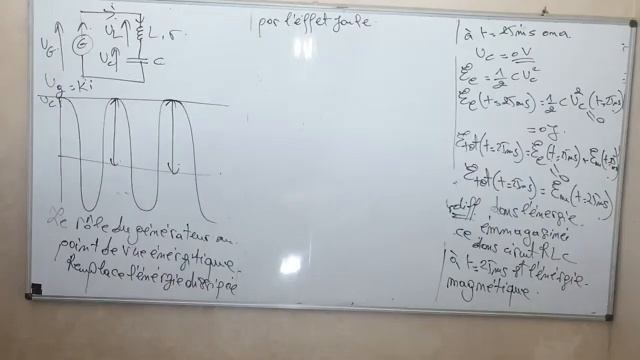 i
U_G
G
U_L
L, r
U_C
C
U_g = Ki
U_C
Le rôle du générateur au
point de vue énergétique.
Remplace l'énergie dissipée
par l'effet Joule.
à t = 25ms on a
U_C = 0V
E_e = 1/2 C U_C^2
E_e(t=25ms) = 1/2 C U_C^2(t=25ms)
= 0J.
E_tot(t=25ms) = E_e(t=25ms) + E_m(t=25ms)
E_tot(t=25ms) = E_m(t=25ms)
dans l'énergie
emmagasinée
dans circuit RLC
à t = 25ms est l'énergie
magnétique.